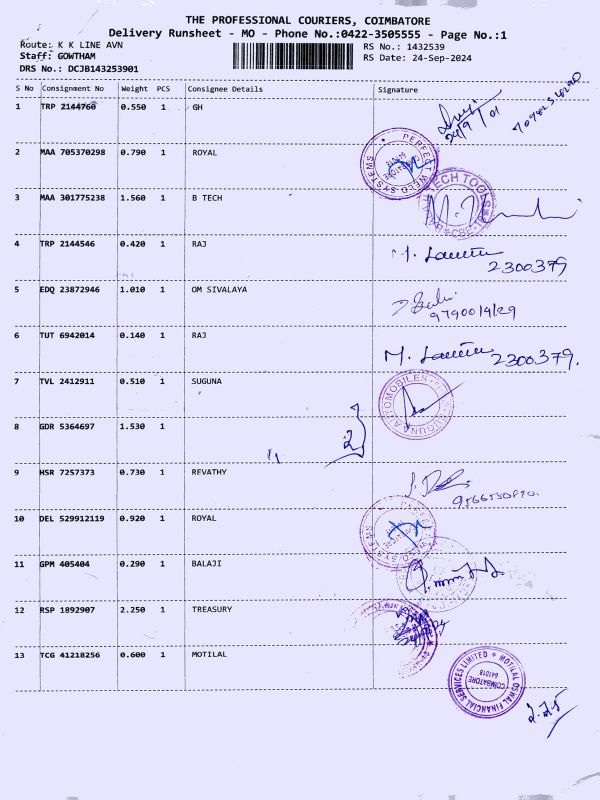 THE PROFESSIONAL COURIERS, COIMBATORE
Delivery Runsheet - MO - Phone No.:0422-3505555 - Page No.:1
Route: K K LINE AVN
RS No.: 1432539
Staff: GOWTHAM
RS Date: 24-Sep-2024
DRS No.: DCJB143253901
S No Consignment No Weight PCS Consignee Details Signature
1 TRP 2144760 0.550 1 GH
2 MAA 705370298 0.790 1 ROYAL
PERFECT WELD SYSTEMS
3 MAA 301775238 1.560 1 B TECH
TECH TOOLS
4 TRP 2144546 0.420 1 RAJ
2300379
5 EDQ 23872946 1.010 1 OM SIVALAYA
6 TUT 6942014 0.140 1 RAJ
2300379.
7 TVL 2412911 0.510 1 SUGUNA
SUGUNA AUTOMOBILES
8 GDR 5364697 1.530 1
9 HSR 7257373 0.730 1 REVATHY
10 DEL 529912119 0.920 1 ROYAL
11 GPM 405404 0.290 1 BALAJI
12 RSP 1892907 2.250 1 TREASURY
13 TCG 41218256 0.600 1 MOTILAL
MOTILAL OSWAL FINANCIAL SERVICES LIMITED
COIMBATORE
641018